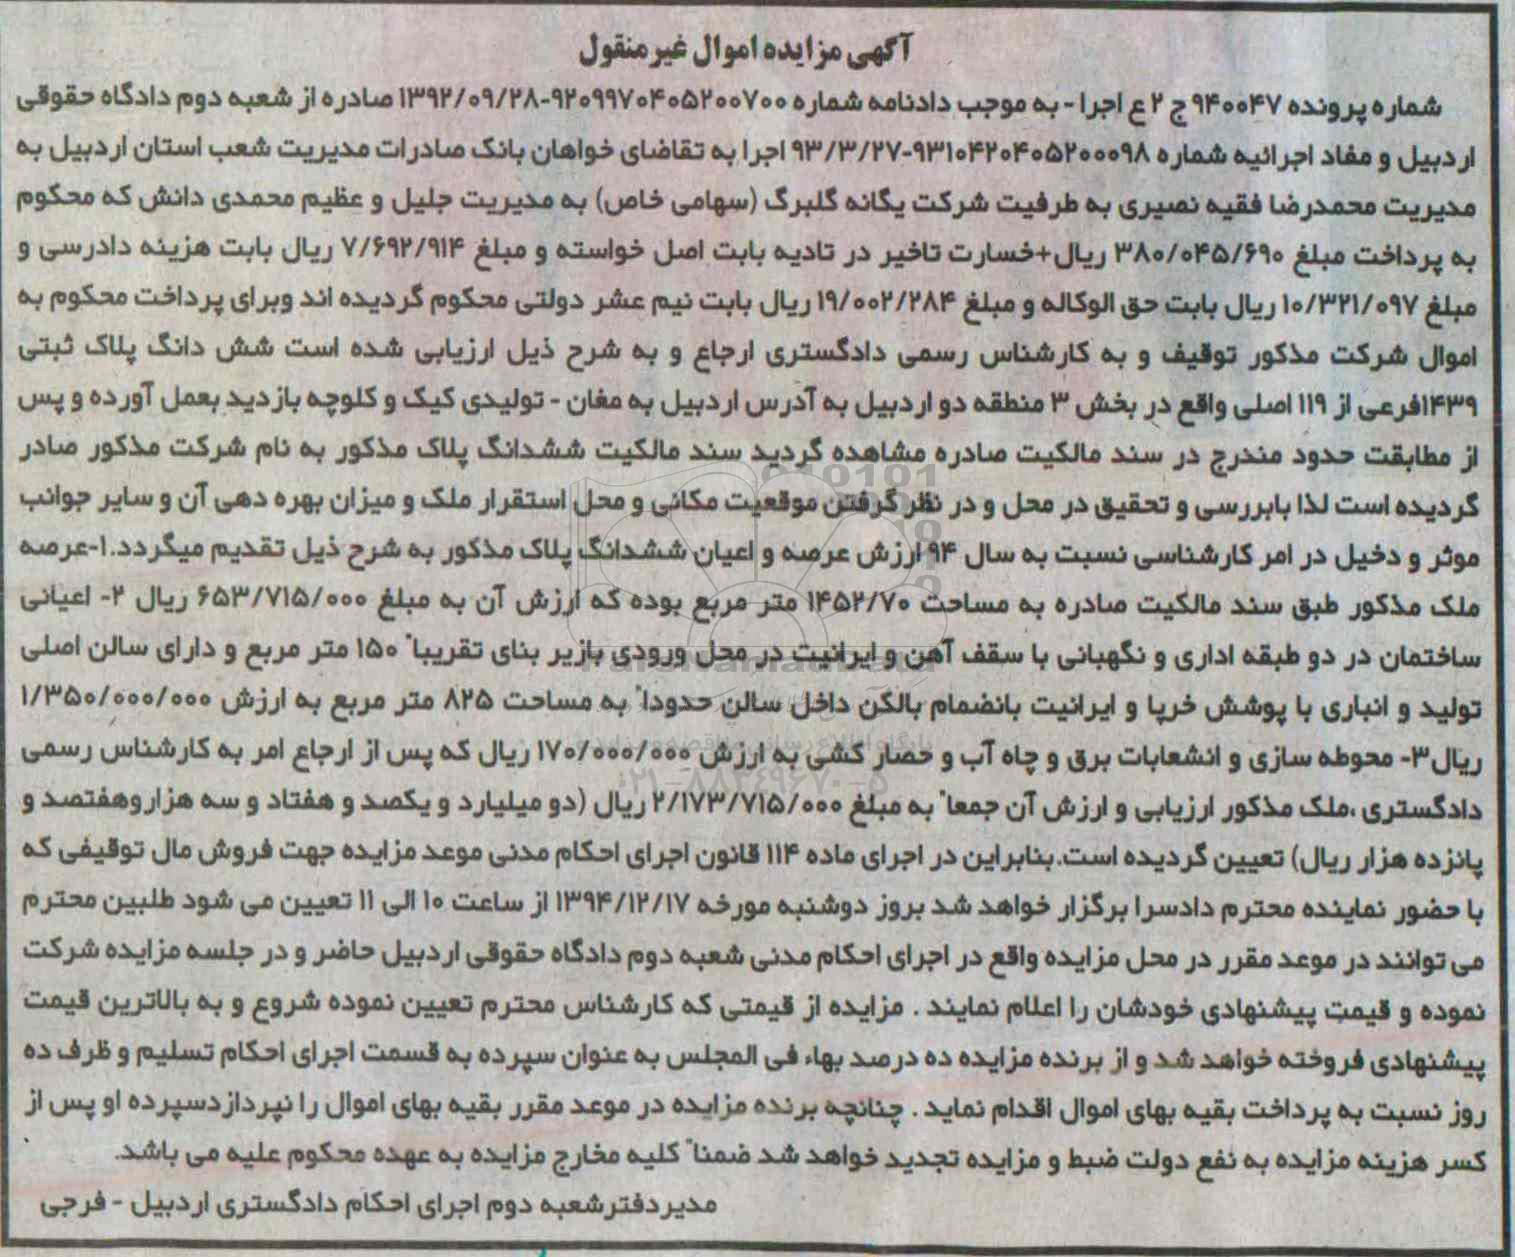 آگهی مزایده اموال غیرمنقول
شماره پرونده ۹۴۰۰۴۷ ج ۲ ع اجرا - به موجب دادنامه شماره ۹۲۰۹۹۷۰۴۰۵۲۰۰۷۰۰-۱۳۹۲/۰۹/۲۸ صادره از شعبه دوم دادگاه حقوقی
اردبیل و مفاد اجرائیه شماره ۹۳۱۰۴۲۰۴۰۵۲۰۰۰۹۸-۹۳/۳/۲۷ اجرا به تقاضای خواهان بانک صادرات مدیریت شعب استان اردبیل به
مدیریت محمدرضا فقیه نصیری به طرفیت شرکت یگانه گلبرگ (سهامی خاص) به مدیریت جلیل و عظیم محمدی دانش که محکوم
به پرداخت مبلغ ۳۸۰/۰۴۵/۶۹۰ ریال+خسارت تاخیر در تادیه بابت اصل خواسته و مبلغ ۷/۶۹۲/۹۱۴ ریال بابت هزینه دادرسی و
مبلغ ۱۰/۳۲۱/۰۹۷ ریال بابت حق الوکاله و مبلغ ۱۹/۰۰۲/۲۸۴ ریال بابت نیم عشر دولتی محکوم گردیده اند وبرای پرداخت محکوم به
اموال شرکت مذکور توقیف و به کارشناس رسمی دادگستری ارجاع و به شرح ذیل ارزیابی شده است شش دانگ پلاک ثبتی
۱۴۳۹فرعی از ۱۱۹ اصلی واقع در بخش ۳ منطقه دو اردبیل به آدرس اردبیل به مغان - تولیدی کیک و کلوچه بازدید بعمل آورده و پس
از مطابقت حدود مندرج در سند مالکیت صادره مشاهده گردید سند مالکیت ششدانگ پلاک مذکور به نام شرکت مذکور صادر
گردیده است لذا بابررسی و تحقیق در محل و در نظر گرفتن موقعیت مکانی و محل استقرار ملک و میزان بهره دهی آن و سایر جوانب
موثر و دخیل در امر کارشناسی نسبت به سال ۹۴ ارزش عرصه و اعیان ششدانگ پلاک مذکور به شرح ذیل تقدیم میگردد.۱-عرصه
ملک مذکور طبق سند مالکیت صادره به مساحت ۱۴۵۲/۷۰ متر مربع بوده که ارزش آن به مبلغ ۶۵۳/۷۱۵/۰۰۰ ریال ۲- اعیانی
ساختمان در دو طبقه اداری و نگهبانی با سقف آهن و ایرانیت در محل ورودی بازیر بنای تقریباً ۱۵۰ متر مربع و دارای سالن اصلی
تولید و انباری با پوشش خرپا و ایرانیت بانضمام بالکن داخل سالن حدوداً به مساحت ۸۲۵ متر مربع به ارزش ۱/۳۵۰/۰۰۰/۰۰۰
ریال۳- محوطه سازی و انشعابات برق و چاه آب و حصار کشی به ارزش ۱۷۰/۰۰۰/۰۰۰ ریال که پس از ارجاع امر به کارشناس رسمی
دادگستری ،ملک مذکور ارزیابی و ارزش آن جمعاً به مبلغ ۲/۱۷۳/۷۱۵/۰۰۰ ریال (دو میلیارد و یکصد و هفتاد و سه هزاروهفتصد و
پانزده هزار ریال) تعیین گردیده است.بنابراین در اجرای ماده ۱۱۴ قانون اجرای احکام مدنی موعد مزایده جهت فروش مال توقیفی که
با حضور نماینده محترم دادسرا برگزار خواهد شد بروز دوشنبه مورخه ۱۳۹۴/۱۲/۱۷ از ساعت ۱۰ الی ۱۱ تعیین می شود طلبین محترم
می توانند در موعد مقرر در محل مزایده واقع در اجرای احکام مدنی شعبه دوم دادگاه حقوقی اردبیل حاضر و در جلسه مزایده شرکت
نموده و قیمت پیشنهادی خودشان را اعلام نمایند . مزایده از قیمتی که کارشناس محترم تعیین نموده شروع و به بالاترین قیمت
پیشنهادی فروخته خواهد شد و از برنده مزایده ده درصد بهاء فی المجلس به عنوان سپرده به قسمت اجرای احکام تسلیم و ظرف ده
روز نسبت به پرداخت بقیه بهای اموال اقدام نماید . چنانچه برنده مزایده در موعد مقرر بقیه بهای اموال را نپردازدسپرده او پس از
کسر هزینه مزایده به نفع دولت ضبط و مزایده تجدید خواهد شد ضمناً کلیه مخارج مزایده به عهده محکوم علیه می باشد.
مدیردفترشعبه دوم اجرای احکام دادگستری اردبیل - فرجی
۰۲۱-۸۸۳۴۹۶۷۰-۵